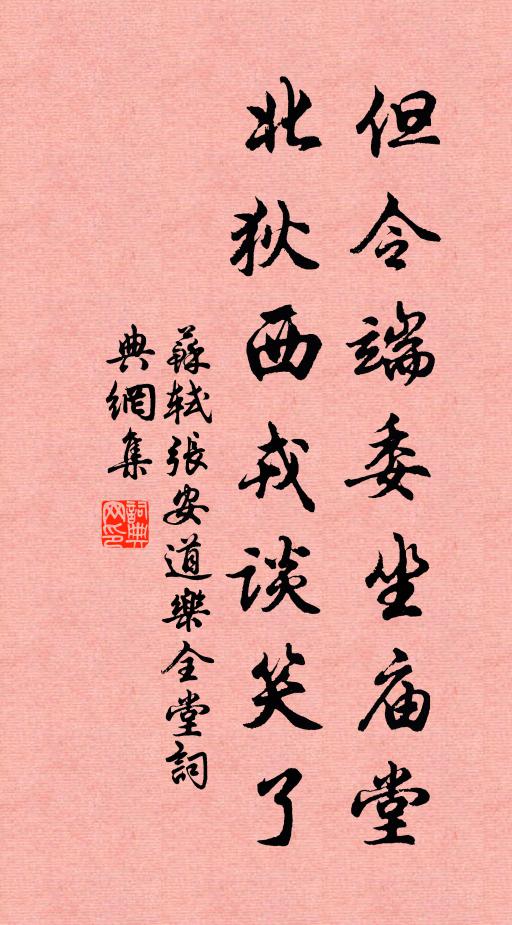 但令端委坐庙堂
北狄西戎談笑了
蘇軾張安道樂全堂詞
典網集
詞典网印